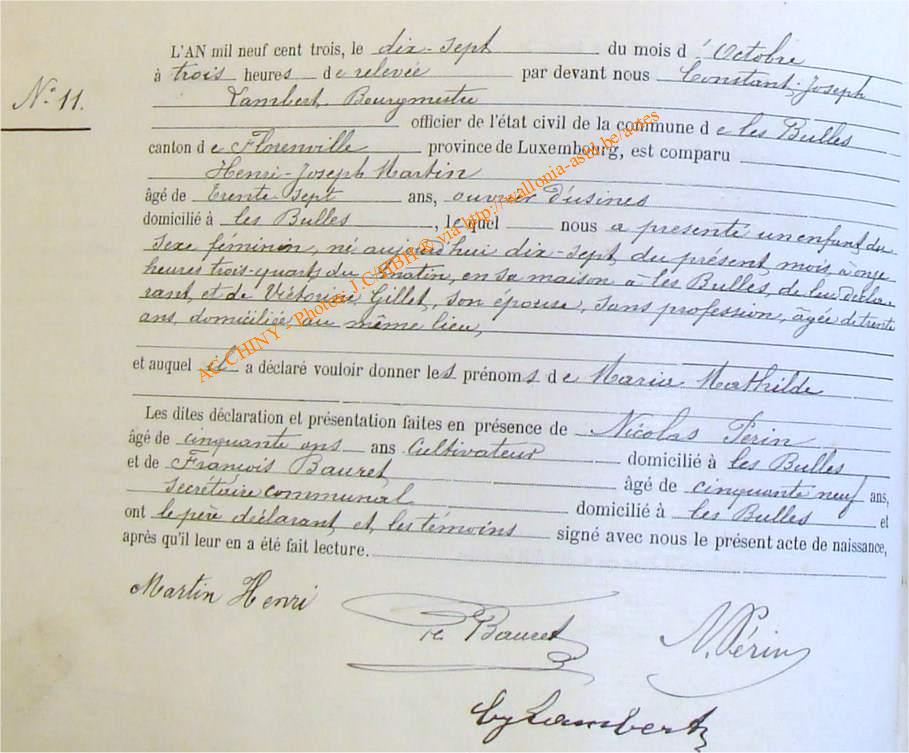 N° 11.
L'AN mil neuf cent trois, le dix-sept du mois d'Octobre
à trois heures de relevée par devant nous Constant-Joseph
Lambert Bourgmestre
officier de l'état civil de la commune de les Bulles
canton de Florenville province de Luxembourg, est comparu
Henri-Joseph Martin
âgé de trente-sept ans, ouvrier d'usines
domicilié à les Bulles, lequel nous a présenté un enfant du
sexe féminin, né aujourd'hui dix-sept du présent mois, à onze
heures trois-quarts du matin, en sa maison à les Bulles, de lui décla-
rant, et de Victorine Gillet, son épouse, sans profession, âgée de trente
ans, domiciliée au même lieu,
et auquel il a déclaré vouloir donner les prénoms de Maria Mathilde
Les dites déclaration et présentation faites en présence de Nicolas Périn
âgé de cinquante ans ans Cultivateur domicilié à les Bulles
et de François Bauret âgé de cinquante neuf ans,
secrétaire communal domicilié à les Bulles et
ont le père déclarant et les témoins signé avec nous le présent acte de naissance,
après qu'il leur en a été fait lecture.
Martin Henri
Bauret
N. Périn
Lambert
AC CHINY - Photos J.C. HBH © via http://wallonia-asbl.be/actes